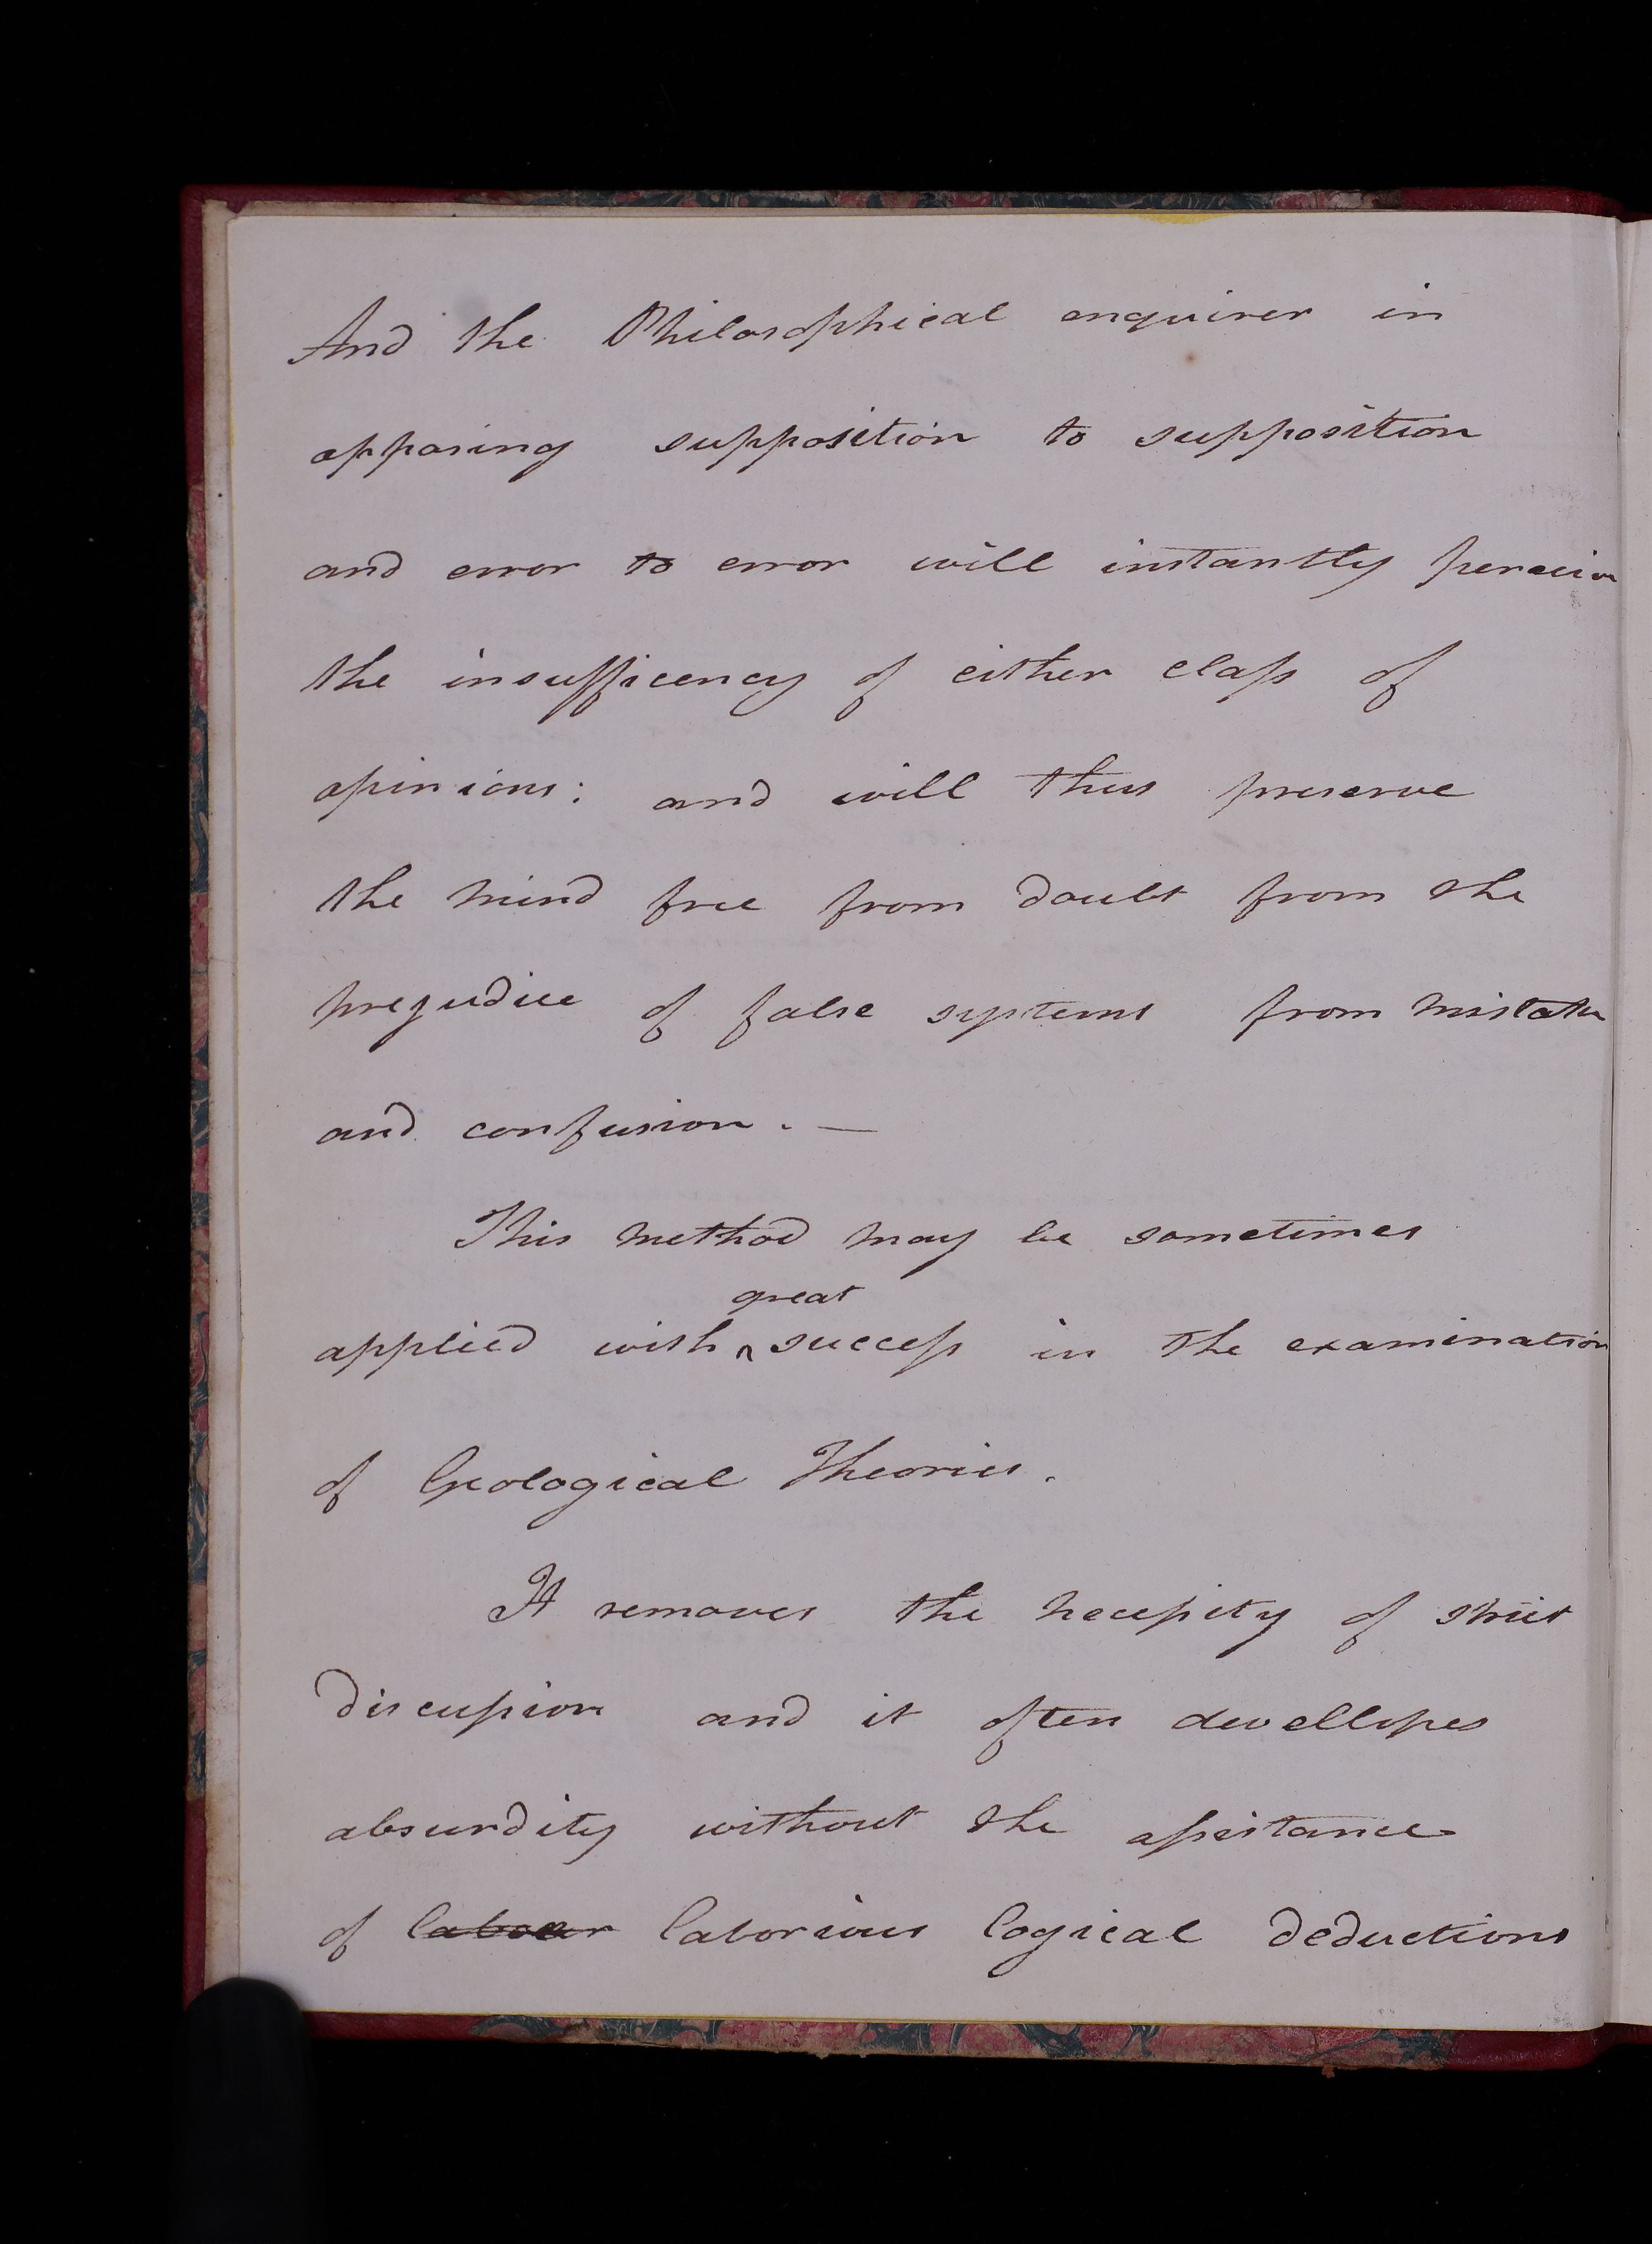 And the Philosophical enquirer in
opposing supposition to supposition
and error to error will instantly perceive
the insufficency of either class of
opinions: and will thus preserve
the mind free from doubt from the
prejudice of false systems from mistake
and confusion. —
This method may be sometimes
great
applied with ^ success in the examination
of Geological Theories.
It removes the necessity of strict
discussion and it often devellopes
absurdity without the assistance
of labour laborious logical deductions